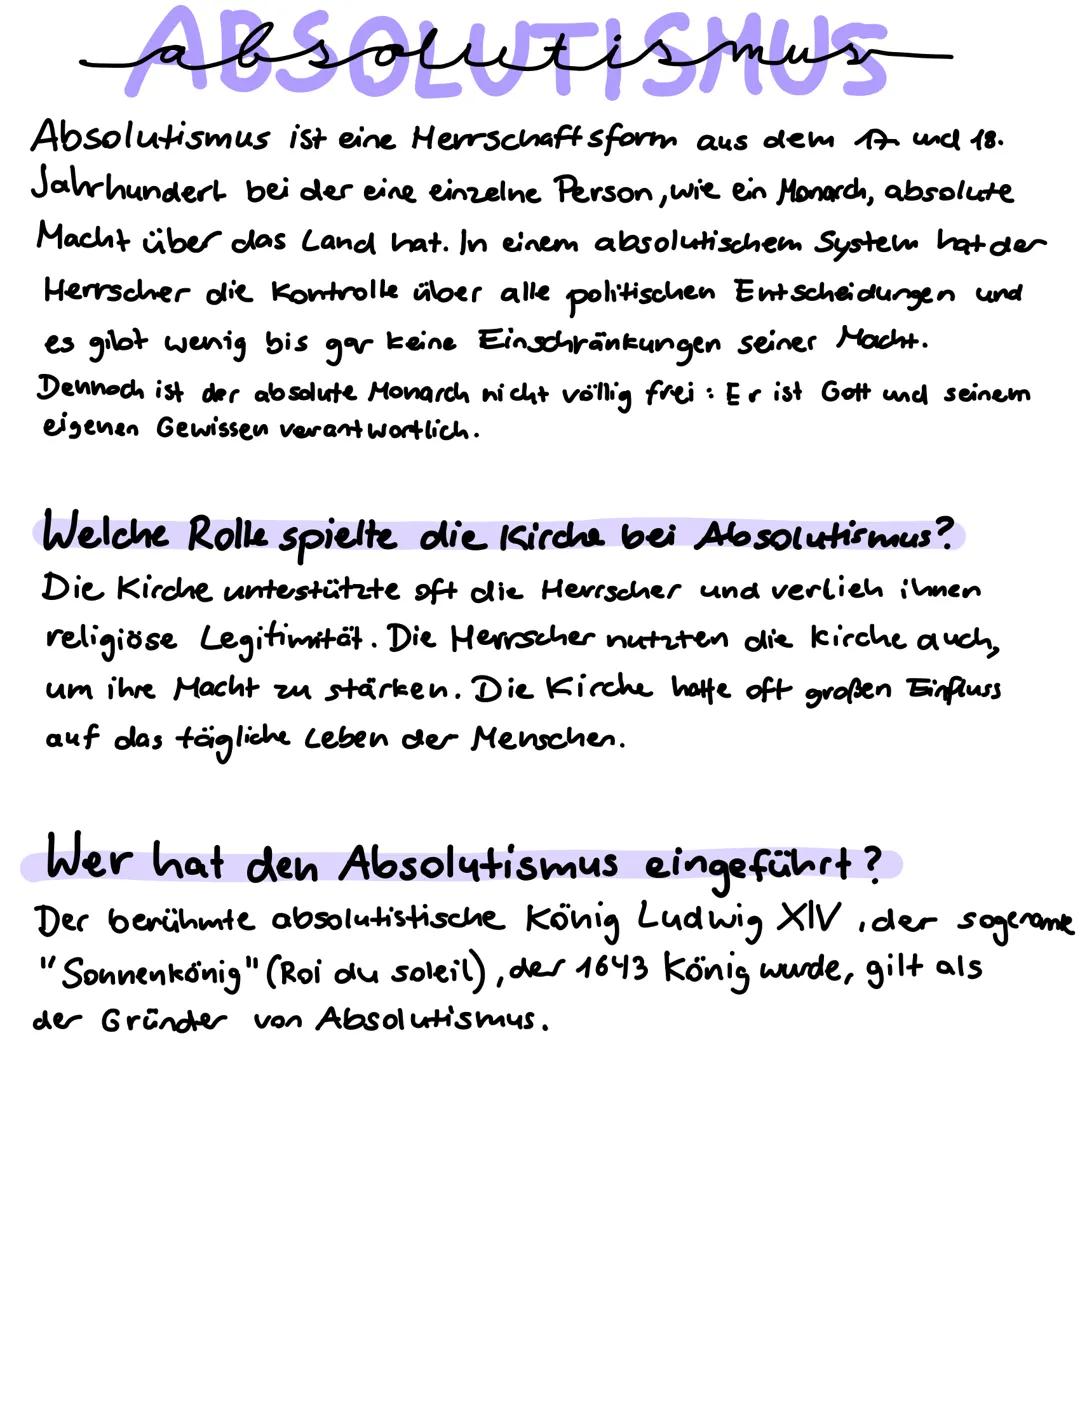 ABSOLUTISMUS
absolutismus
Absolutismus ist eine Herrschaftsform aus dem 17. und 18.
Jahrhundert bei der eine einzelne Person, wie ein Monarch, absolute
Macht über das Land hat. In einem absolutischem System hat der
Herrscher die Kontrolle über alle politischen Entscheidungen und
es gibt wenig bis gar keine Einschränkungen seiner Macht.
Dennoch ist der absolute Monarch nicht völlig frei : Er ist Gott und seinem
eigenen Gewissen verantwortlich.
Welche Rolle spielte die Kirche bei Absolutismus?
Die Kirche unterstützte oft die Herrscher und verlieh ihnen
religiöse Legitimität. Die Herrscher nutzten die Kirche auch,
um ihre Macht zu stärken. Die Kirche hatte oft großen Einfluss
auf das tägliche Leben der Menschen.
Wer hat den Absolutismus eingeführt?
Der berühmte absolutistische König Ludwig XIV, der sogenannte
"Sonnenkönig" (Roi du soleil), der 1643 König wurde, gilt als
der Gründer von Absolutismus.